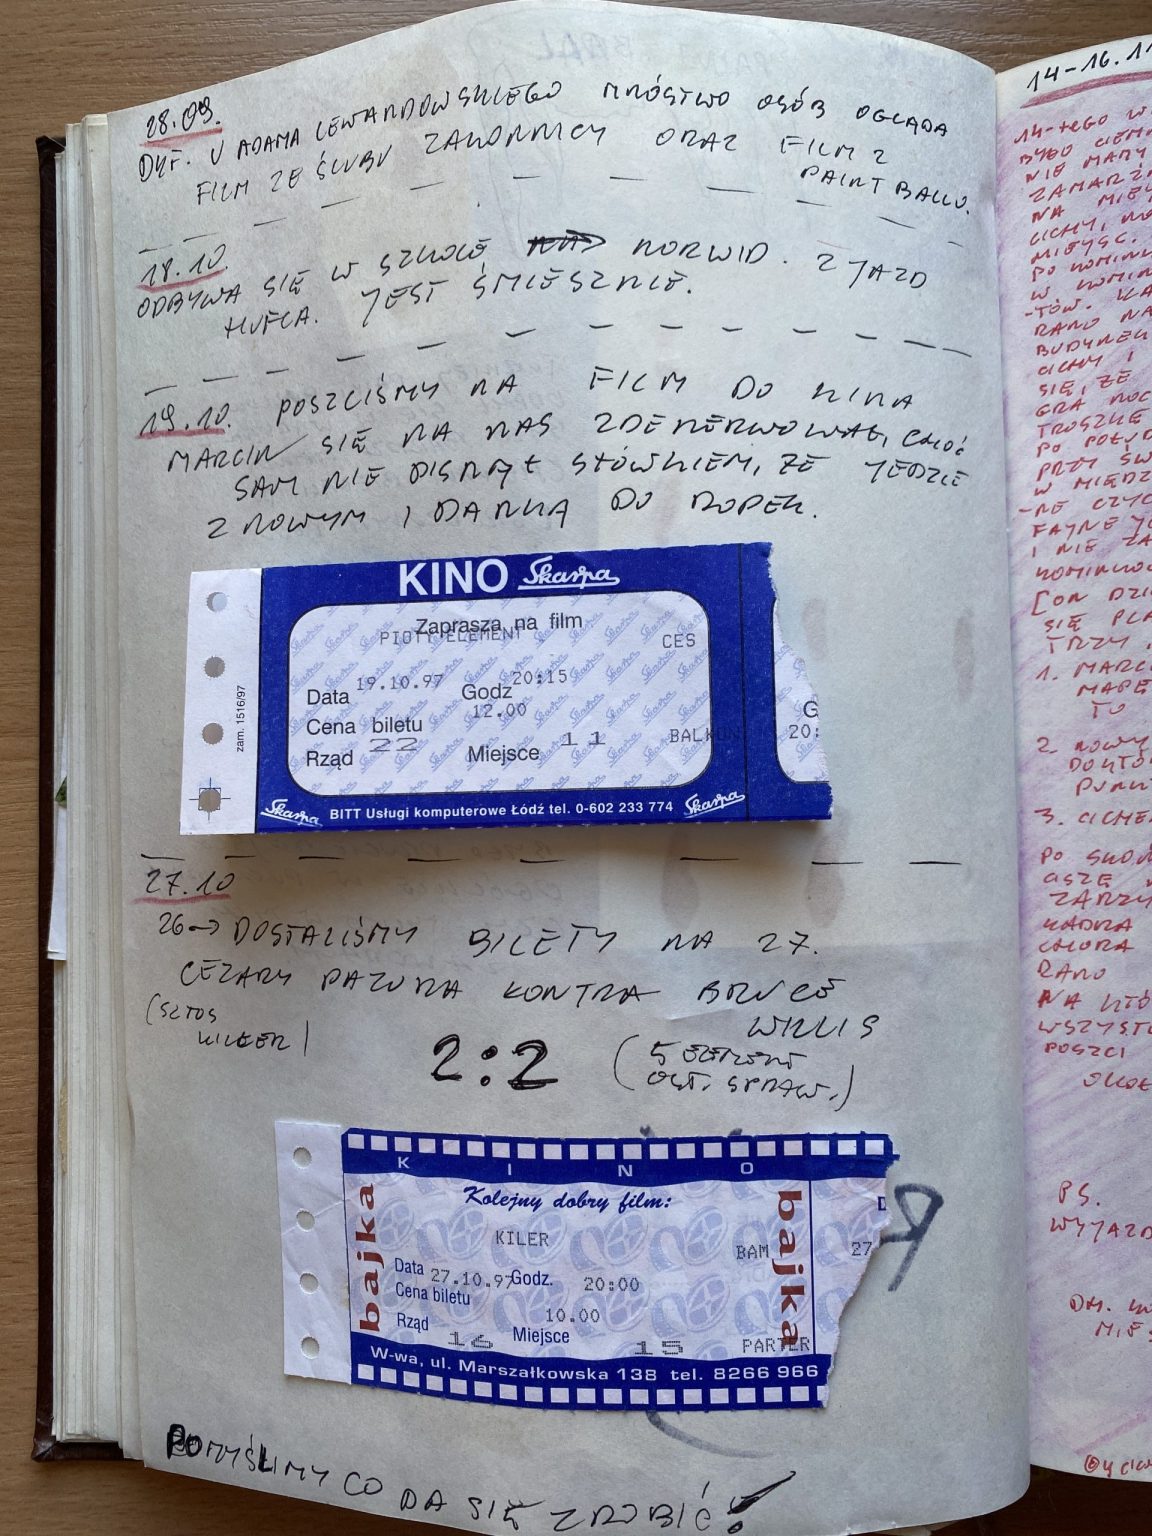 28.09.
DYR. U ADAMA LEWANDOWSKIEGO MNÓSTWO OSÓB OGLĄDA
FILM ZE ŚLUBU ZAKONNICY ORAZ FILM Z
PAINT BALLU.
18.10.
ODBYWA SIĘ W SZKOLE NORWID. ZJAZD
HUFCA. JEST ŚMIESZNIE.
19.10. POSZLIŚMY NA FILM DO KINA
MARCIN SIĘ NA NAS ZDENERWOWAŁ, CHOĆ
SAM NIE PISNĄŁ SŁÓWKIEM, ŻE JEDZIE
Z NOWYM I DANKĄ DO ROPEK.
KINO Skarpa
Zapraszą na film
PIĄTY ELEMENT
CES
Data 19.10.97 Godz 20:15
Cena biletu 12.00
Rząd 22 Miejsce 11 BALKON
G
20:
zam. 1516/97
Skarpa BITT Usługi komputerowe Łódź tel. 0-602 233 774 Skarpa
27.10
26→ DOSTALIŚMY BILETY NA 27.
CEZARY PAZURA KONTRA BRUCE
WILLIS
(SZTOS
KILLER)
2:2
(5 ELEMENT
OST. SPRAW.)
KINO
bajka
Kolejny dobry film:
KILER
BAM
Data 27.10.97 Godz. 20:00
Cena biletu 10.00
Rząd 16 Miejsce 15 PARTER
bajka
27
W-wa, ul. Marszałkowska 138 tel. 8266 966
POMYŚLIMY CO DA SIĘ ZROBIĆ!
14-16.11
14-TEGO W
BYŁO CIEM
NIE MAMY
ZAMARZ
NA MIEJ
CICHY, MA
MIEJSC.
PO KOMINK
W KOMIN
-TÓW. KA
RANO NA
BUDYNEK
CICHY I
SIĘ, ŻE
GRA NOC
TROSZKĘ
PO POŁUD
PRZY ŚW
W MIĘDZ
-NE CZYC
FAJNE
I NIE ZA
KOMINKO
[ON DZI
SIĘ PLA
TRZY
1. MARC
MAPE
TO
2. NOWY
DOKTÓ
PUNK
3. CICHE
PO SKOŃ
ZARZ
KADRA
CHORA
RANO
NA KTÓ
WSZYST
POSZLI
PS.
WYJAZD